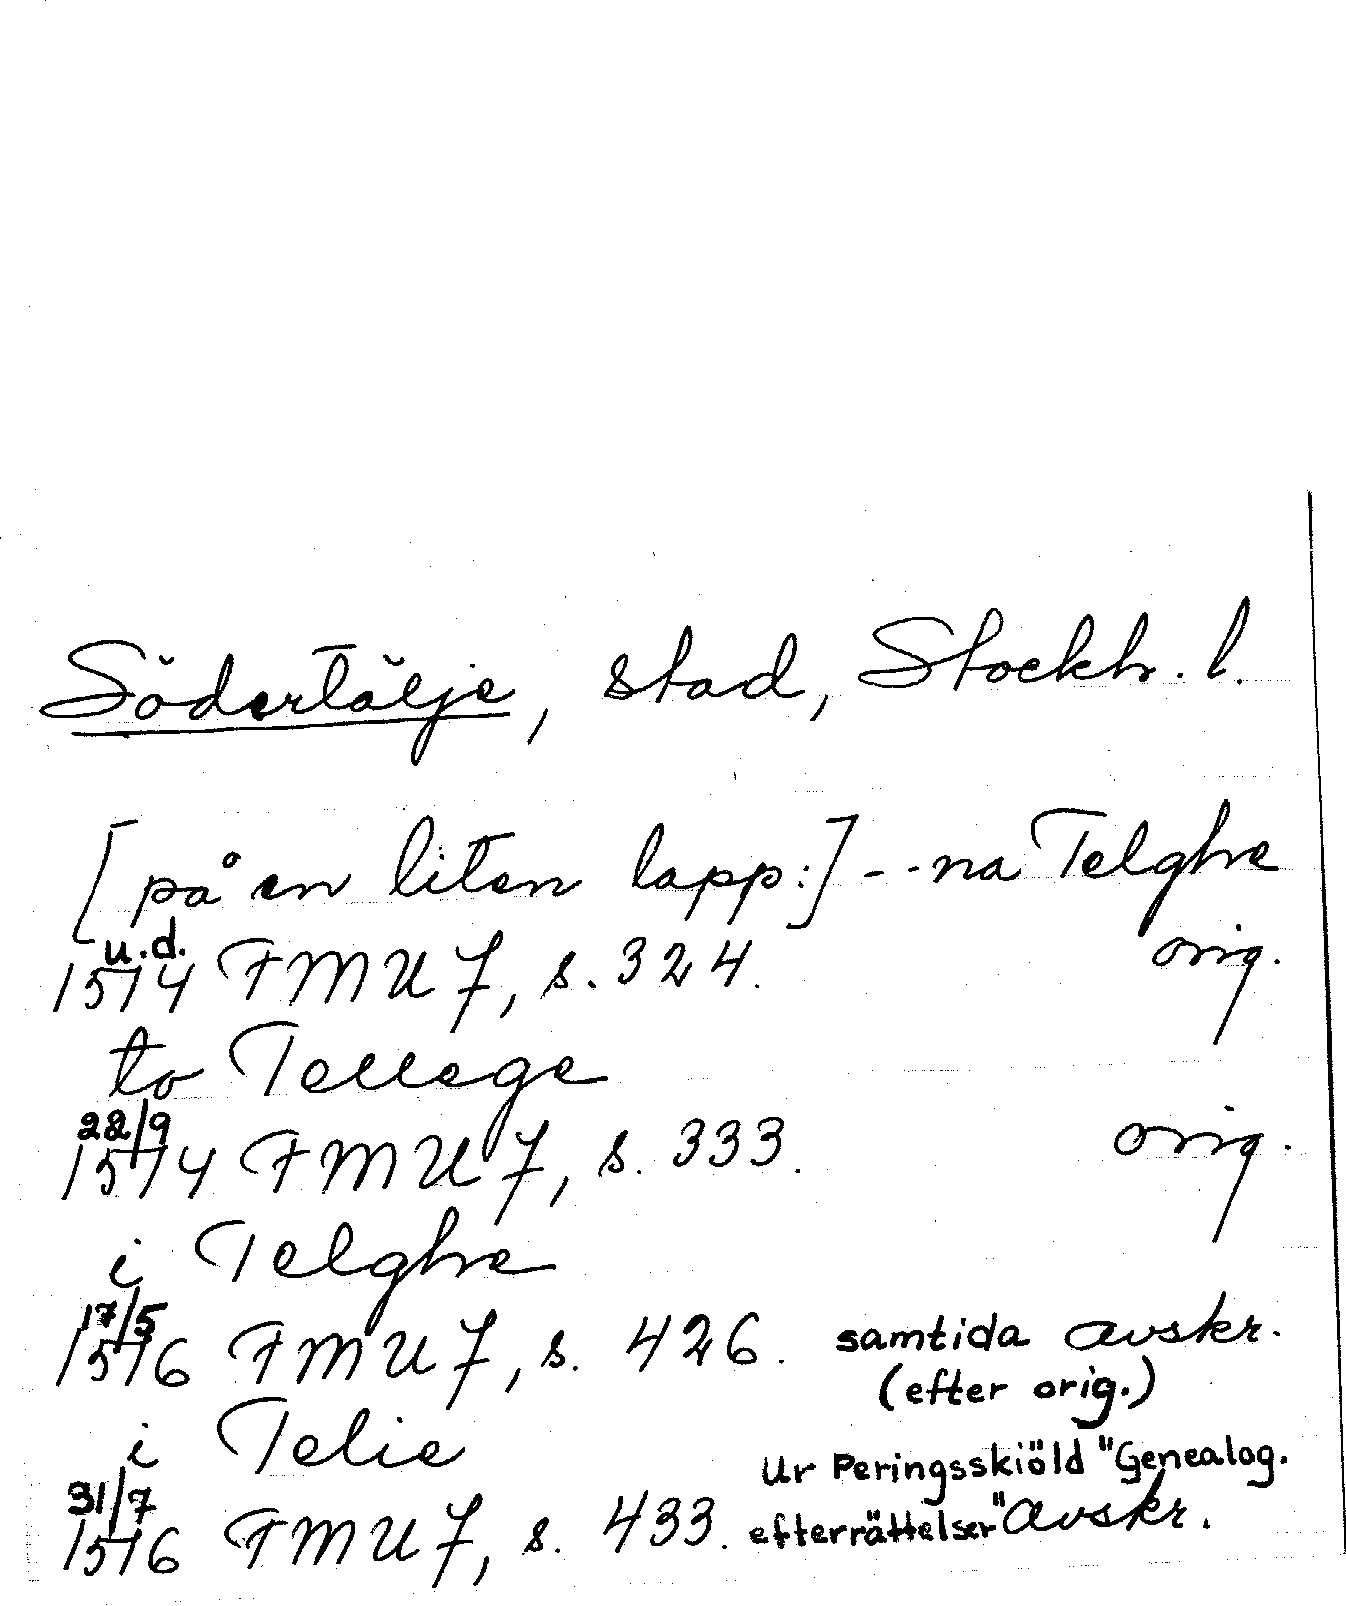 Södertälje, stad, Stockh. l.
[på en liten lapp:] - - na Telghe
u.d.
1514 FMU 7, s. 324. orig.
to Tellege
22/9
1514 FMU 7, s. 333. orig.
i Telghe
17/5
1516 FMU 7, s. 426. samtida avskr.
(efter orig.)
i Telie
Ur Peringsskiöld "Genealog.
31/7
1516 FMU 7, s. 433. efterrättelser" avskr.